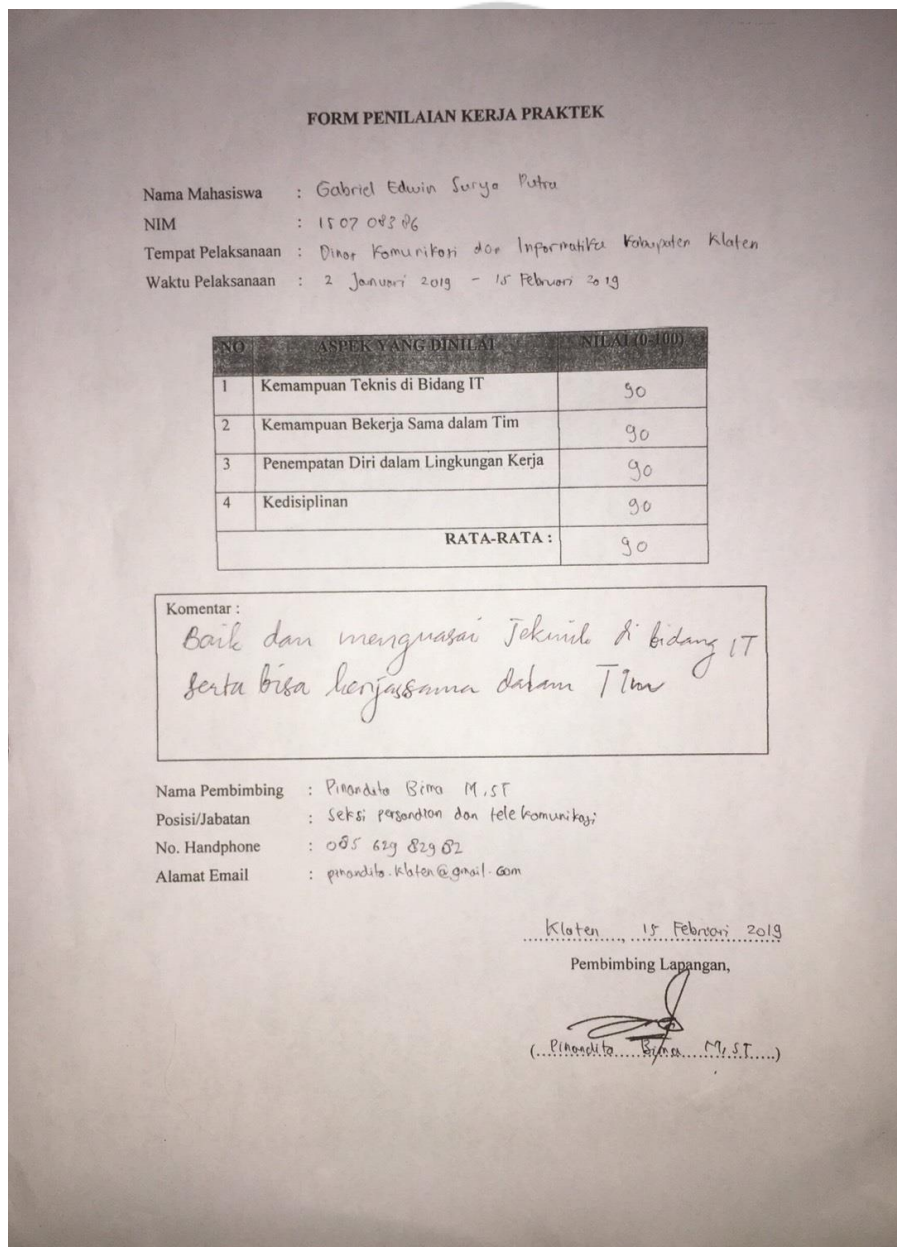 FORM PENILAIAN KERJA PRAKTEK
Nama Mahasiswa : Gabriel Edwin Surya Putra
NIM : 1507 08386
Tempat Pelaksanaan : Dinas Komunikasi dan Informatika Kabupaten Klaten
Waktu Pelaksanaan : 2 Januari 2019 - 15 Februari 2019
NO ASPEK YANG DINILAI NILAI (0-100)
1 Kemampuan Teknis di Bidang IT 90
2 Kemampuan Bekerja Sama dalam Tim 90
3 Penempatan Diri dalam Lingkungan Kerja 90
4 Kedisiplinan 90
RATA-RATA : 90
Komentar :
Baik dan menguasai Teknik di bidang IT
serta bisa kerjassama dalam TIm
Nama Pembimbing : Pinandito Bima M, ST
Posisi/Jabatan : Seksi persandian dan telekomunikasi
No. Handphone : 085 629 829 82
Alamat Email : pinandito.klaten@gmail.com
Klaten, 15 Februari 2019
Pembimbing Lapangan,
(Pinandito Bima M, S.T)